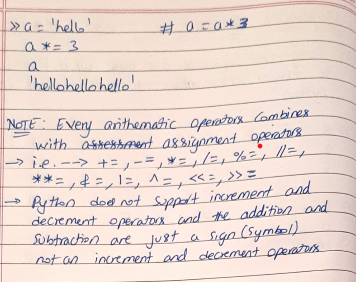 >> a = 'hello' # a = a*3
a *= 3
a
'hellohellohello'
NOTE: Every arithematic operators combines
with assessment assignment operators
→ i.e. --> +=, -=, *=, /=, %=, //=,
**=, &=, |=, ^=, <<=, >>=
→ Python does not support increment and
decrement operators and the addition and
subtraction are just a sign (symbol)
not an increment and decrement operators